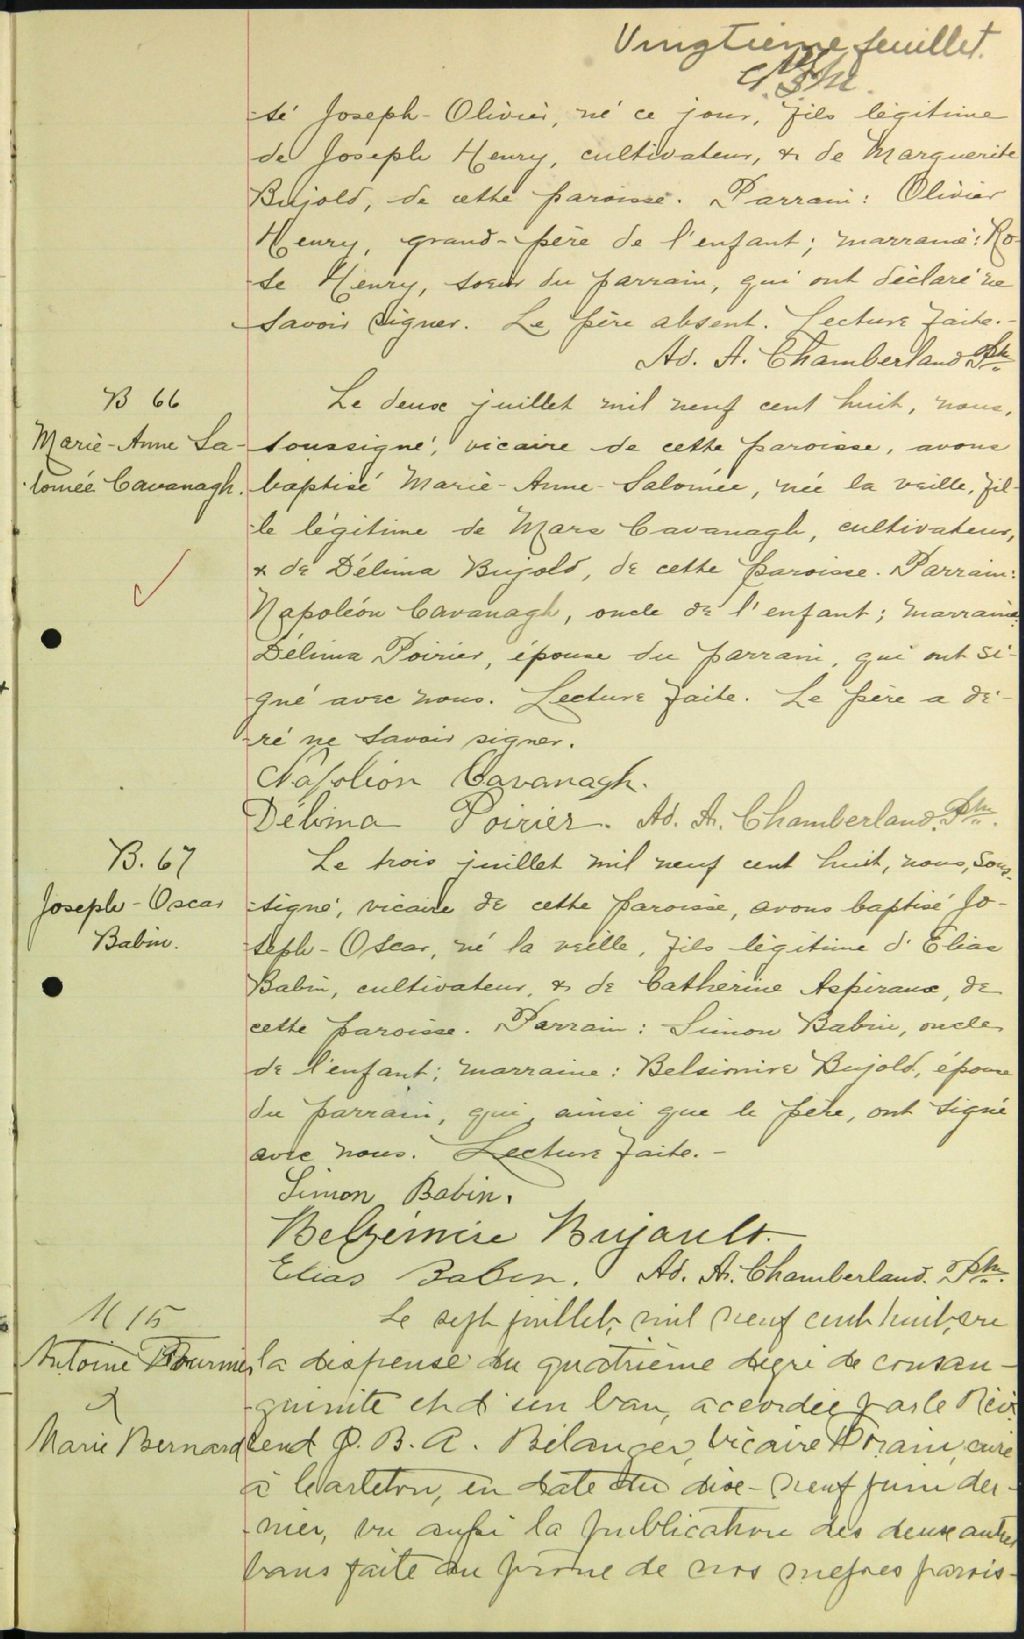 Vingtième feuillet.
-sé Joseph-Olivier, né ce jour, fils légitime
de Joseph Henry, cultivateur, & de Marguerite
Bujold, de cette paroisse. Parrain: Olivier
Henry, grand-père de l'enfant; marraine: Ro-
-se Henry, soeur du parrain, qui ont déclaré ne
savoir signer. Le père absent. Lecture faite.-
Ad. A. Chamberland Ptre
B 66
Marie-Anne Sa-
-lomée Cavanagh.
Le deux juillet mil neuf cent huit, nous,
soussigné, vicaire de cette paroisse, avons
baptisé Marie-Anne-Salomée, née la veille, fil-
-le légitime de Marc Cavanagh, cultivateur,
& de Délima Bujold, de cette paroisse. Parrain:
Napoléon Cavanagh, oncle de l'enfant; marraine:
Délima Poirier, épouse du parrain, qui ont si-
-gné avec nous. Lecture faite. Le père a dé-
-ré ne savoir signer.
Napoléon Cavanagh.
Délima Poirier. Ad. A. Chamberland. Ptre.
B. 67
Joseph-Oscar
Babin.
Le trois juillet mil neuf cent huit, nous, sous-
-signé, vicaire de cette paroisse, avons baptisé Jo-
-seph-Oscar, né la veille, fils légitime d'Elias
Babin, cultivateur, & de Catherine Aspiraux, de
cette paroisse. Parrain: Simon Babin, oncle
de l'enfant; marraine: Belsimire Bujold, épouse
du parrain, qui, ainsi que le père, ont signé
avec nous. Lecture faite.-
Simon Babin.
Belzémire Bujault.
Elias Babin. Ad. A. Chamberland. Ptre.
M 15
Antoine Fournier
&
Marie Bernard
Le sept juillet, mil neuf cent huit, vu
la dispense du quatrième degré de consan-
-guinité et d'un ban, accordée par le Rév
-rend J. B. A. Bélanger, Vicaire Forain, curé
à Carleton, en date du dix-neuf juin der-
-nier, vu aussi la publication des deux autres
bans faite au prône de nos messes parois-